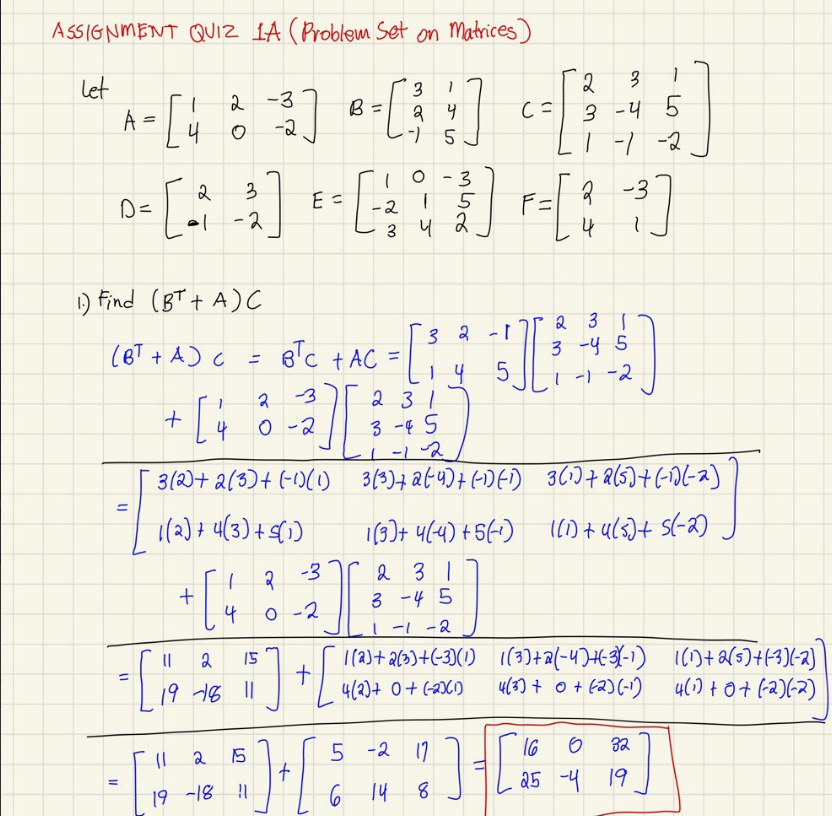 ASSIGNMENT QUIZ 1A (Problem Set on Matrices)
Let
A = [1 2 -3; 4 0 -2] B = [3 1; 2 4; -1 5] C = [2 3 1; 3 -4 5; 1 -1 -2]
D = [2 3; -1 -2] E = [1 0 -3; -2 1 5; 3 4 2] F = [2 -3; 4 1]
1.) Find (Bᵀ + A) C
(Bᵀ + A) C = BᵀC + AC = [3 2 -1; 1 4 5] [2 3 1; 3 -4 5; 1 -1 -2]
+ [1 2 -3; 4 0 -2] [2 3 1; 3 -4 5; 1 -1 -2]
= [3(2)+2(3)+(-1)(1) 3(3)+2(-4)+(-1)(-1) 3(1)+2(5)+(-1)(-2);
1(2)+4(3)+5(1) 1(3)+4(-4)+5(-1) 1(1)+4(5)+5(-2)]
+ [1 2 -3; 4 0 -2] [2 3 1; 3 -4 5; 1 -1 -2]
= [11 2 15; 19 -18 11] + [1(2)+2(3)+(-3)(1) 1(3)+2(-4)+(-3)(-1) 1(1)+2(5)+(-3)(-2);
4(2)+0+(-2)(1) 4(3)+0+(-2)(-1) 4(1)+0+(-2)(-2)]
= [11 2 15; 19 -18 11] + [5 -2 17; 6 14 8] = [16 0 32; 25 -4 19]